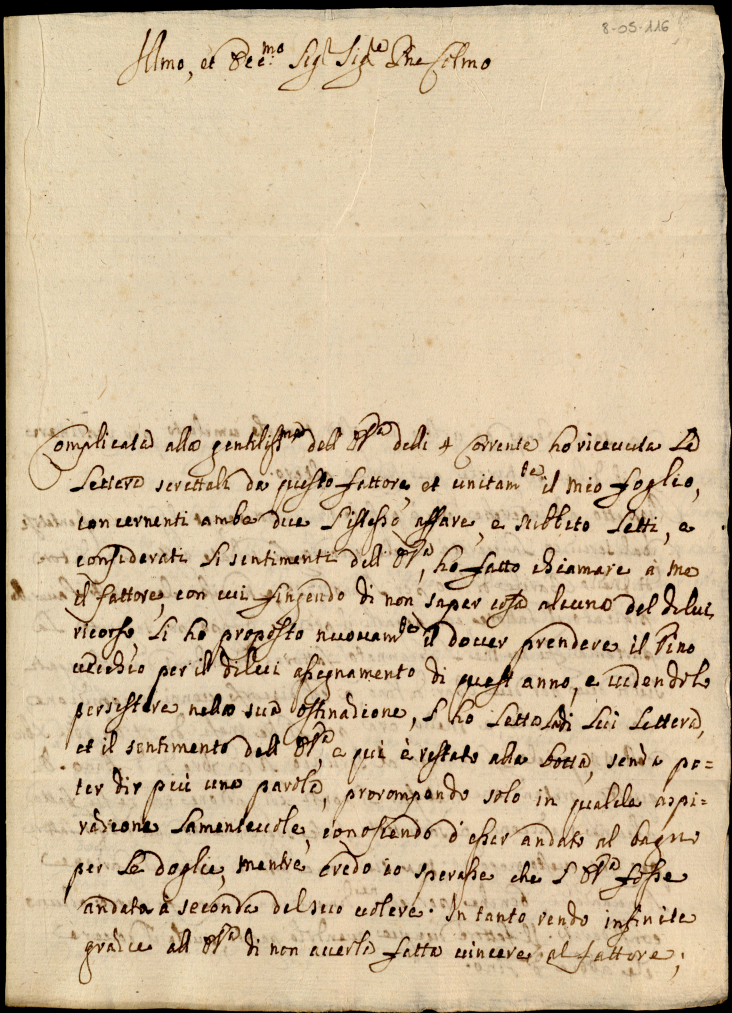 8-05-116
Illmo, et Ecc.mo Sigr Sigre Pne Colmo
Complicata alla gentilissma dell' V.S.a delli 4 Corrente ho riceuuta La
Lettera scrittali da questo fattore, et unitamte il mio foglio,
concernenti ambe due l'istesso affare, e subbito Letti, e
considerati li sentimenti dell' V.S.a, ho fatto chiamare à me
il fattore, con cui fingendo di non saper cosa alcuna del di lui
ricorso, Li hò proposto nuouamte il douer prendere il Vino
uecchio per il di lui assegnamento di quest' anno, e uedendolo
persistere nella sua ostinazione, l'ho Letta La di Lui Lettera,
et il sentimento dell' V.S.a, e quì è restato alla botta, senza po=
ter dir più una parola, prorompendo solo in qualche aspi=
razione Lamenteuole, conoscendo d'esser andato al bagno
per Le doglie, mentre credo io sperasse che l' V.S.a fosse
andata à seconda del suo uolere. In tanto rendo infinite
grazie all' V.S.a di non auerla fatta uincere al fattore;